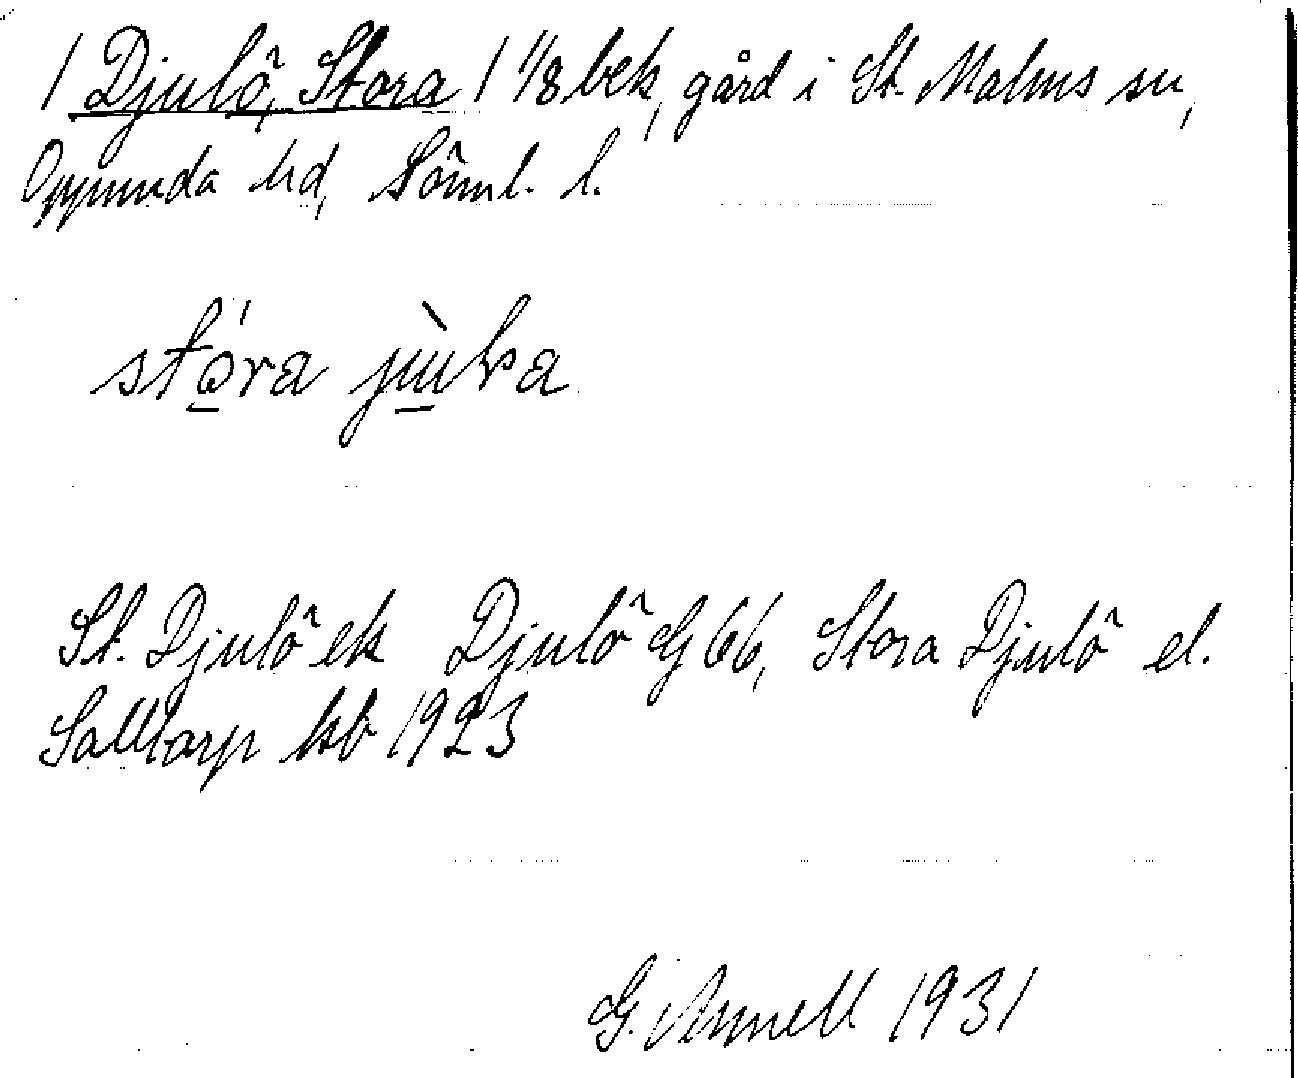 / Djulö, Stora / 1 1/8 bek, gård i St. Malms sn,
Oppunda hd, Söml. l.
stóra
St. Djulö ek Djulö G 66, Stora Djulö el.
Salltarp kb 1923
G. Annell 1931